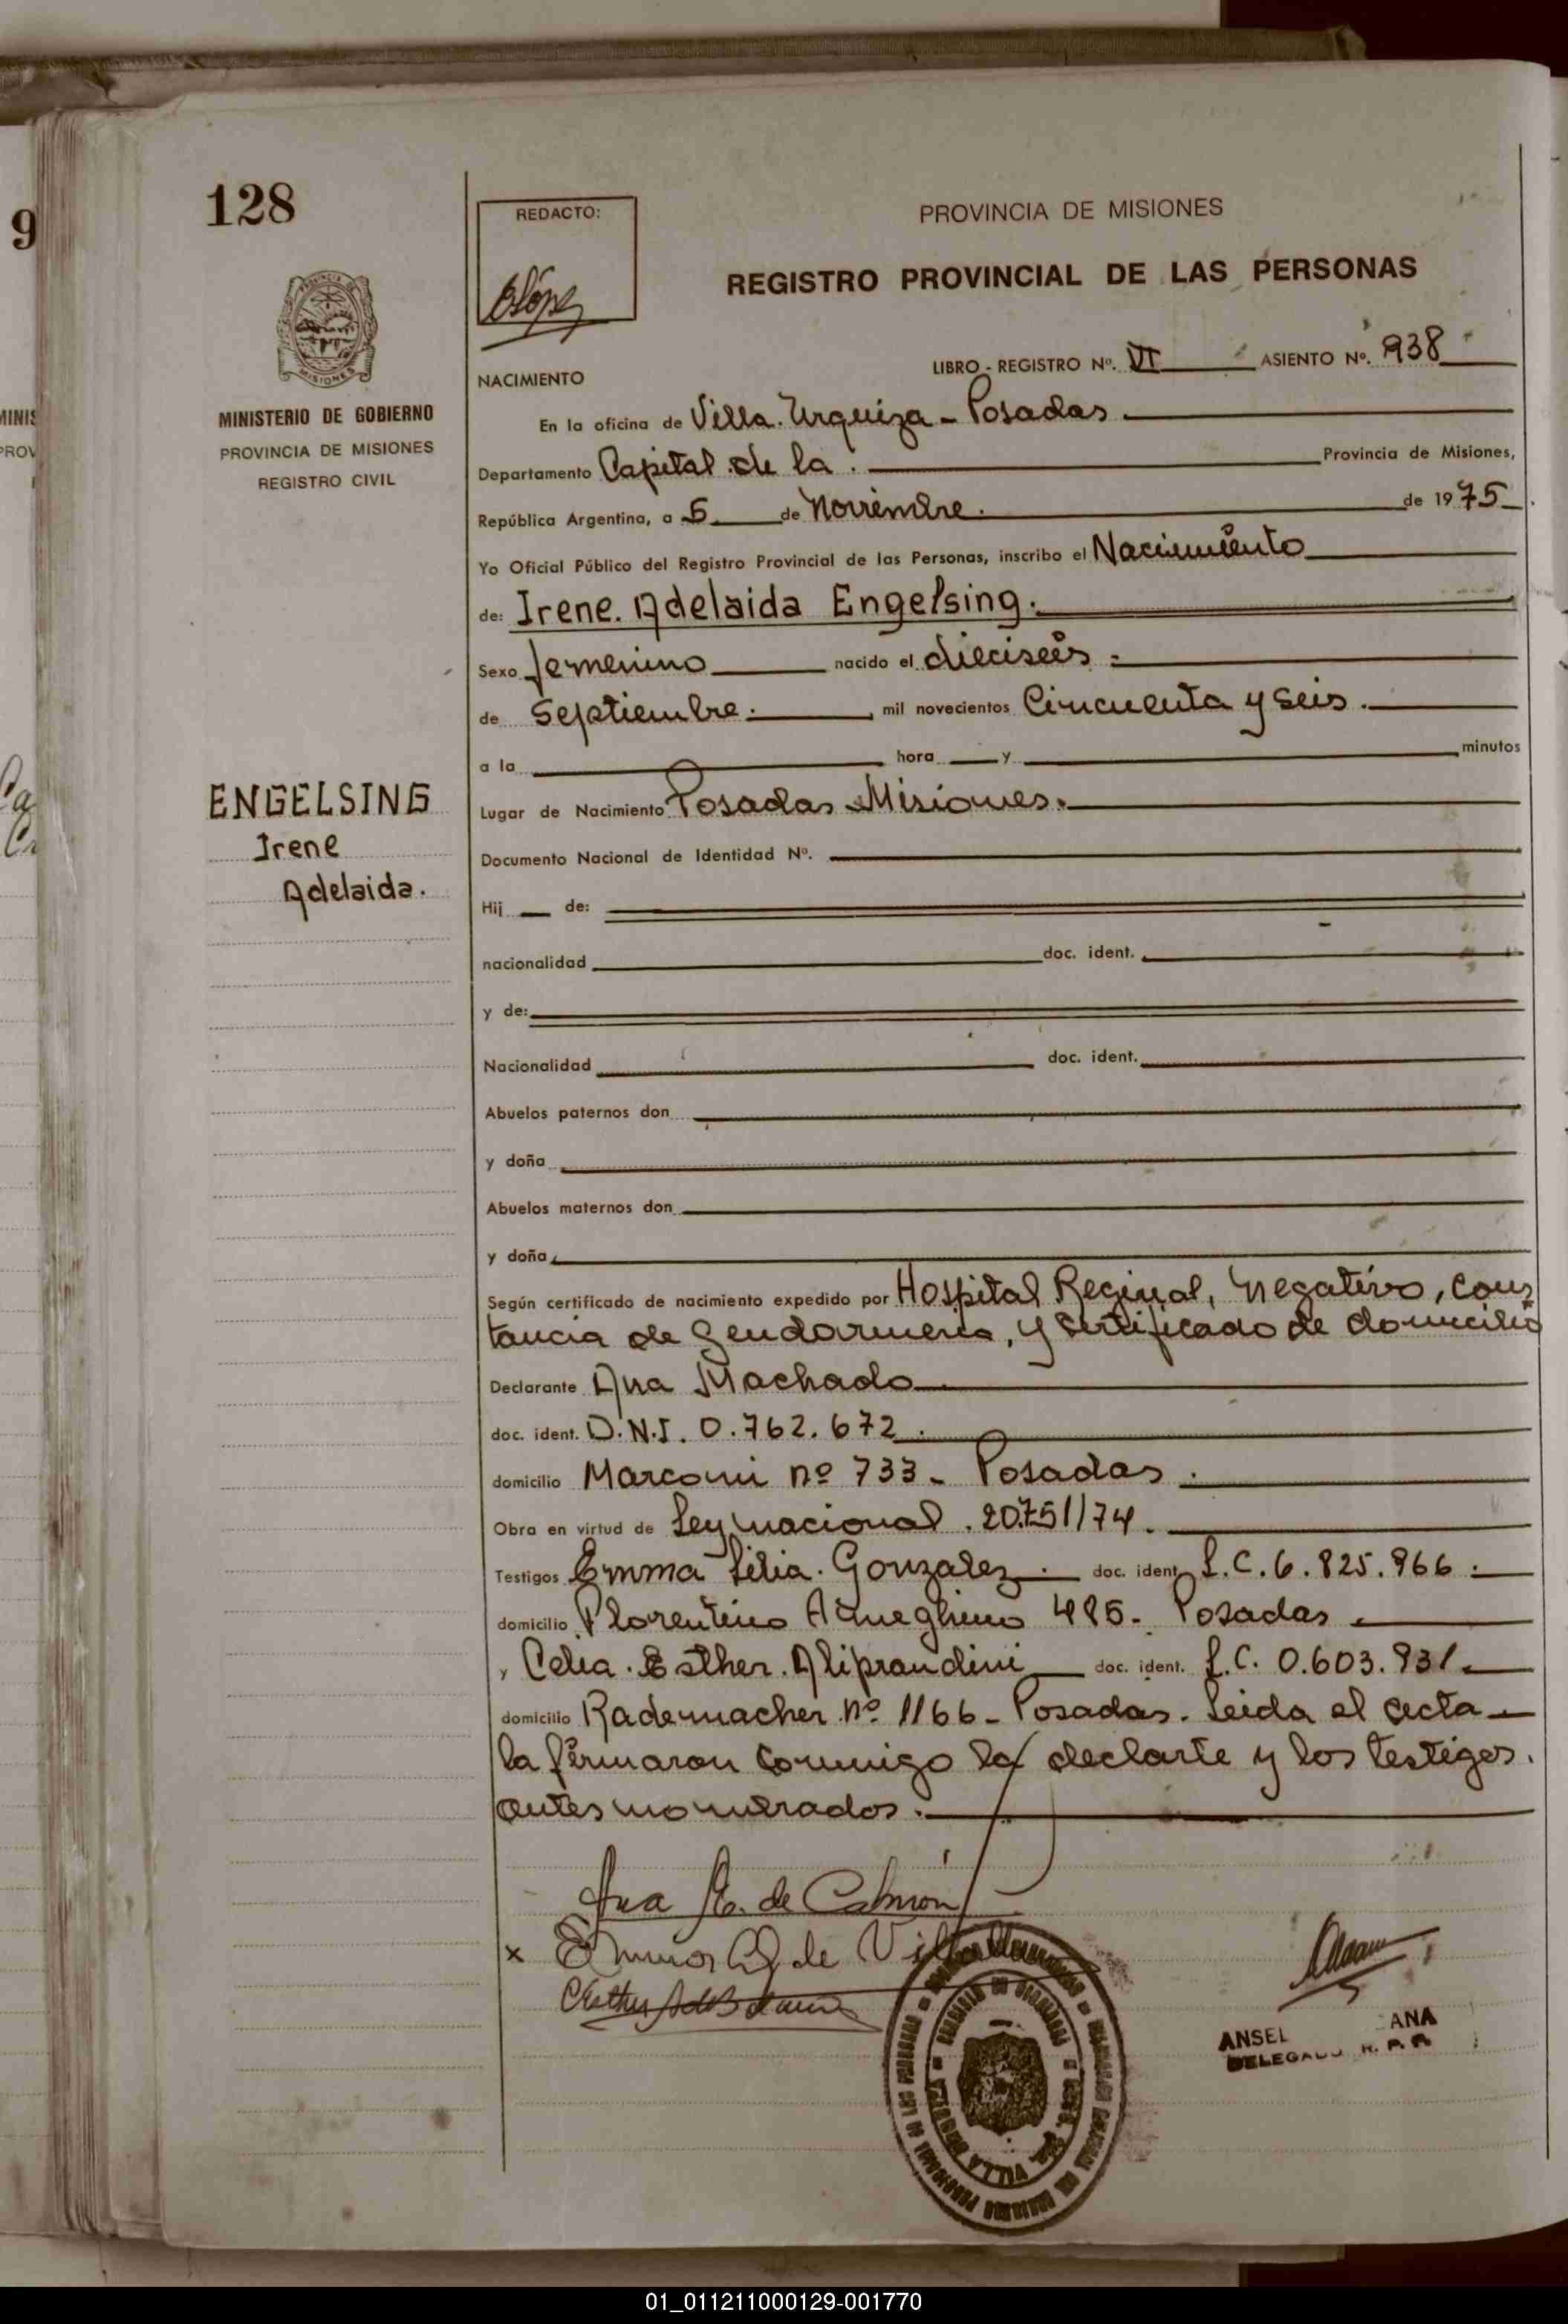 9
128
REDACTO:
PROVINCIA DE MISIONES
REGISTRO PROVINCIAL DE LAS PERSONAS
LIBRO - REGISTRO Nº. VI ASIENTO Nº. 938
NACIMIENTO
MINISTERIO DE GOBIERNO
PROVINCIA DE MISIONES
REGISTRO CIVIL
En la oficina de Villa. Urquiza - Posadas
Departamento Capital de la. Provincia de Misiones,
República Argentina, a 5 de Noviembre. de 1975
Yo Oficial Público del Registro Provincial de las Personas, inscribo el Nacimiento
de: Irene. Adelaida Engelsing.
Sexo femenino nacido el dieciseis
de septiembre. mil novecientos Cincuenta y seis.
a la hora y minutos
ENGELSING
Irene
Adelaida.
Lugar de Nacimiento Posadas Misiones.
Documento Nacional de Identidad Nº.
Hij de:
nacionalidad doc. ident.
y de:
Nacionalidad doc. ident.
Abuelos paternos don
y doña
Abuelos maternos don
y doña
Según certificado de nacimiento expedido por Hospital Reginal, negativo, cons
tancia de gendarmeria, y sertificado de domicilio
Declarante Ana Machado
doc. ident. D.N.I. 0.762.672.
domicilio Marconi nº 733 - Posadas.
Obra en virtud de Ley nacional. 20.751/74.
Testigos Emma Lilia. Gonzalez. doc. ident. L.C. 6.825.966.
domicilio Florentino Ameghino 485 - Posadas
y Celia. Esther. Aliprandini doc. ident. L.C. 0.603.931
domicilio Rademacher nº 1166 - Posadas. Leida el acta
la firmaron conmigo la declarte y los testigos.
antes nombrados.
Ana M. de
ANSEL ANA
DELEGADO R. P. P.
VILLA URQUIZA
01_011211000129-001770